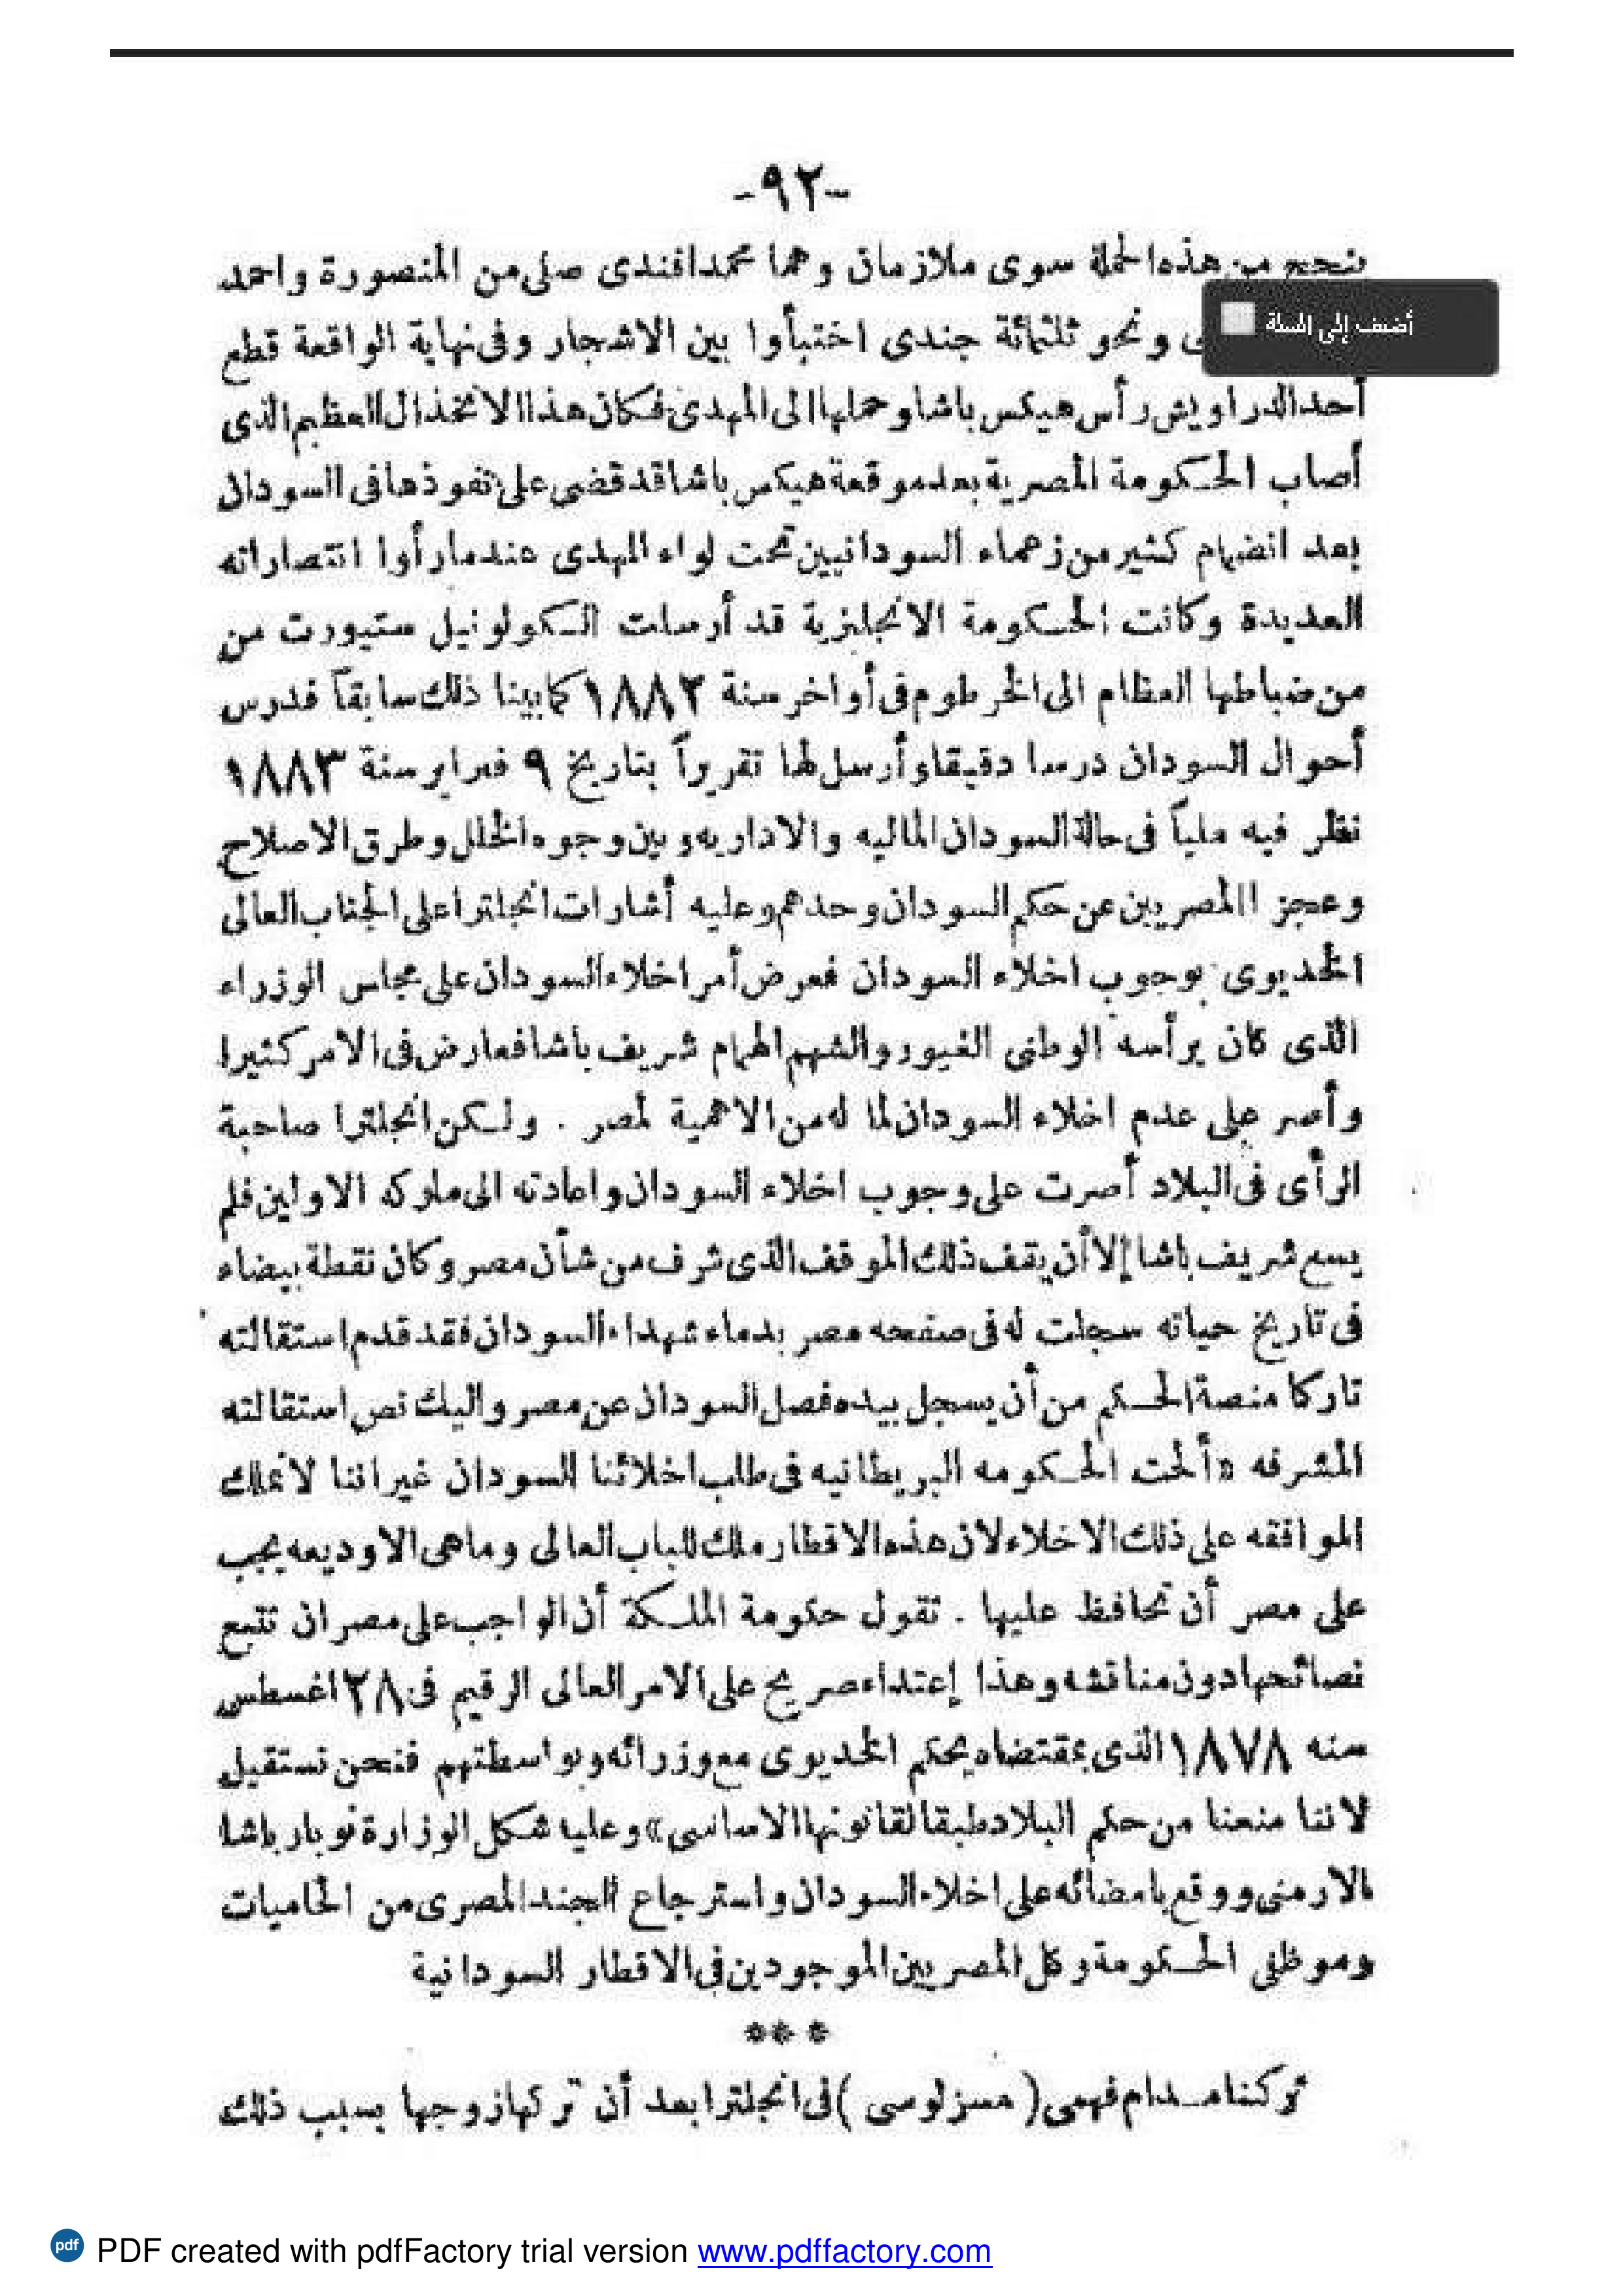 -٩٢-
من هذه الحملة سوى ملازمان وهما محمد افندى صلى من المنصورة واحمد
أضف إلى السلة
ونحو ثلثمائة جندى اختبأوا بين الاشجار وفى نهاية الواقعة قطع
أحد الدراويش رأس هيكس باشا وحملها الى المهدى فكان هذا الانخذال العظيم الذى
أصاب الحكومة المصرية بعد موقعة هيكس باشا قد قضى على نفوذها فى السودان
بعد انضمام كثير من زعماء السودانيين تحت لواء المهدى عندما رأوا انتصاراته
العديدة وكانت الحكومة الانجليزية قد أرسلت الكولونيل ستيورت من
من ضباطها العظام الى الخرطوم فى أواخر سنة ١٨٨٢ كما بينا ذلك سابقاً فدرس
أحوال السودان درسا دقيقا وأرسل لها تقريراً بتاريخ ٩ فبراير سنة ١٨٨٣
نظر فيه ملياً فى حالة السودان الماليه والاداريه وبين وجوه الخلل وطرق الاصلاح
وعجز االمصريين عن حكم السودان وحدهم وعليه أشارات انجلترا على الجناب العالى
الخديوى بوجوب اخلاء السودان فعرض أمر اخلاء السودان على مجلس الوزراء
الذى كان يرأسه الوطنى الغيور والشهم الهمام شريف باشا فعارض فى الامر كثيرا
وأصر على عدم اخلاء السودان لما له من الاهمية لمصر . ولكن انجلترا صاحبة
الرأى فى البلاد أصرت على وجوب اخلاء السودان واعادته الى ملوكه الاولين فلم
يسع شريف باشا إلا أن يقف ذلك الموقف الذى شرف من شأن مصر وكان نقطة بيضاء
فى تاريخ حياته سجلت له فى صفحه مصر بدماء شهداء السودان فقد قدم استقالته
تاركا منصة الحكم من أن يسجل بيده فصل السودان عن مصر واليك نص استقالته
المشرفه «ألحت الحكومه البريطانيه فى طلب اخلائنا السودان غير اننا لا نملك
الموافقه على ذلك الاخلاء لان هذه الاقطار ملك للباب العالى وما هى الا وديعه يجب
على مصر أن تحافظ عليها . تقول حكومة الملكة أن الواجب على مصر ان تتبع
نصائحها دون مناقشه وهذا إعتداء صريح على الامر العالى الرقيم فى ٢٨ اغسطس
سنه ١٨٧٨ الذى بمقتضاه يحكم الخديوى مع وزرائه وبواسطتهم فنحن نستقيل
لاننا منعنا من حكم البلاد طبقا لقانونها الاساسى» وعليه شكل الوزارة نوبار باشا
الارمنى ووقع بامضائه على اخلاء السودان واسترجاع الجند المصرى من الحاميات
وموظفى الحكومة وكل المصريين الموجودين فى الاقطار السودانية
***
تركنا مدام فهمى ( مسز لوسى ) فى انجلترا بعد أن تركها زوجها بسبب ذلك
pdf PDF created with pdfFactory trial version www.pdffactory.com